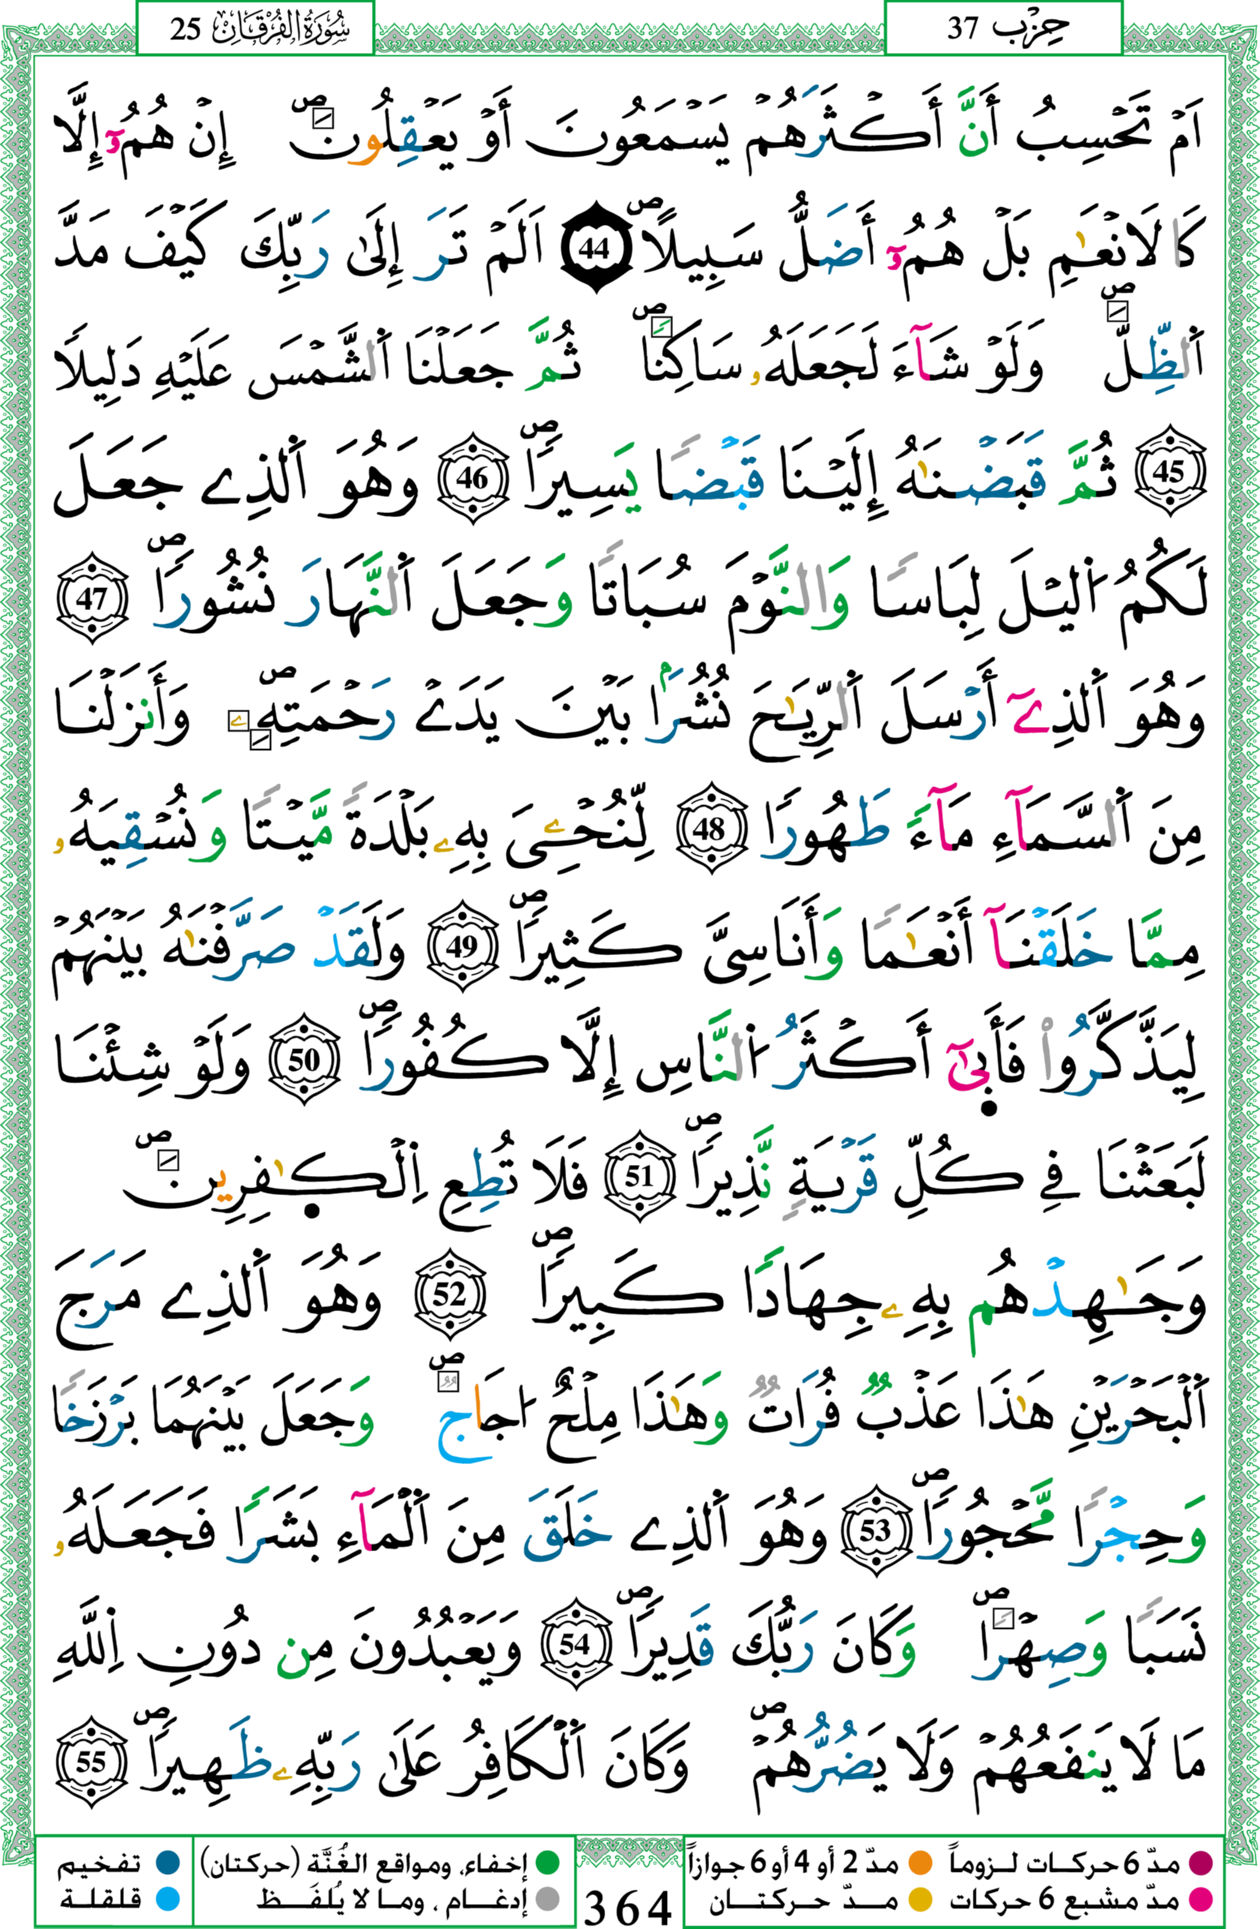 حِزْب 37
سُورَةُ الفُرْقَان 25
اَمْ تَحْسِبُ أَنَّ أَكْثَرَهُمْ يَسْمَعُونَ أَوْ يَعْقِلُونَ ۖ إِنْ هُمُۥٓ إِلَّا
كَالَانْعَٰمِ بَلْ هُمُۥٓ أَضَلُّ سَبِيلًا ۖ 44 اَلَمْ تَرَ إِلَىٰ رَبِّكَ كَيْفَ مَدَّ
اَلظِّلَّ ۖ وَلَوْ شَآءَ لَجَعَلَهُۥ سَاكِنًا ۖ ثُمَّ جَعَلْنَا اَلشَّمْسَ عَلَيْهِ دَلِيلًا
45 ثُمَّ قَبَضْنَٰهُ إِلَيْنَا قَبْضًا يَسِيرًا ۖ 46 وَهُوَ اَلذِے جَعَلَ
لَكُمُ اُليْلَ لِبَاسًا وَالنَّوْمَ سُبَاتًا وَجَعَلَ اَلنَّهَارَ نُشُورًا ۖ 47
وَهُوَ اَلذِےٓ أَرْسَلَ اَلرِّيَٰحَ نُشُرًۢا بَيْنَ يَدَےْ رَحْمَتِهِۦ ۖ وَأَنزَلْنَا
مِنَ اَلسَّمَآءِ مَآءً طَهُورًا 48 لِّنُحْـِۧىَ بِهِۦ بَلْدَةً مَّيْتًا وَنُسْقِيَهُۥ
مِمَّا خَلَقْنَآ أَنْعَٰمًا وَأَنَاسِىَّ كَثِيرًا ۖ 49 وَلَقَدْ صَرَّفْنَٰهُ بَيْنَهُمْ
لِيَذَّكَّرُواْ فَأَبَىٰٓ أَكْثَرُ اُلنَّاسِ إِلَّا كُفُورًا ۖ 50 وَلَوْ شِئْنَا
لَبَعَثْنَا فِے كُلِّ قَرْيَةٍ نَّذِيرًا ۖ 51 فَلَا تُطِعِ اِلْكَٰفِرِينَ ۖ
وَجَٰهِدْهُم بِهِۦ جِهَادًا كَبِيرًا ۖ 52 وَهُوَ اَلذِے مَرَجَ
اَلْبَحْرَيْنِ هَٰذَا عَذْبٌ فُرَاتٌ وَهَٰذَا مِلْحٌ اُجَاجٌ ۖ وَجَعَلَ بَيْنَهُمَا بَرْزَخًا
وَحِجْرًا مَّحْجُورًا ۖ 53 وَهُوَ اَلذِے خَلَقَ مِنَ اَلْمَآءِ بَشَرًا فَجَعَلَهُۥ
نَسَبًا وَصِهْرًا ۖ وَكَانَ رَبُّكَ قَدِيرًا ۖ 54 وَيَعْبُدُونَ مِن دُونِ اِللَّهِ
مَا لَا يَنفَعُهُمْ وَلَا يَضُرُّهُمْ ۖ وَكَانَ اَلْكَافِرُ عَلَىٰ رَبِّهِۦ ظَهِيرًا ۖ 55
مدّ 6 حركات لـزوماً مدّ 2 أو 4 أو 6 جوازاً
مدّ مشبع 6 حركات مـدّ حـركتـــان
364
إخفاء، ومواقع الغُنَّة (حركتان) تفخيم
إدغـام ، ومـا لا يُلفَـظ قلقلة